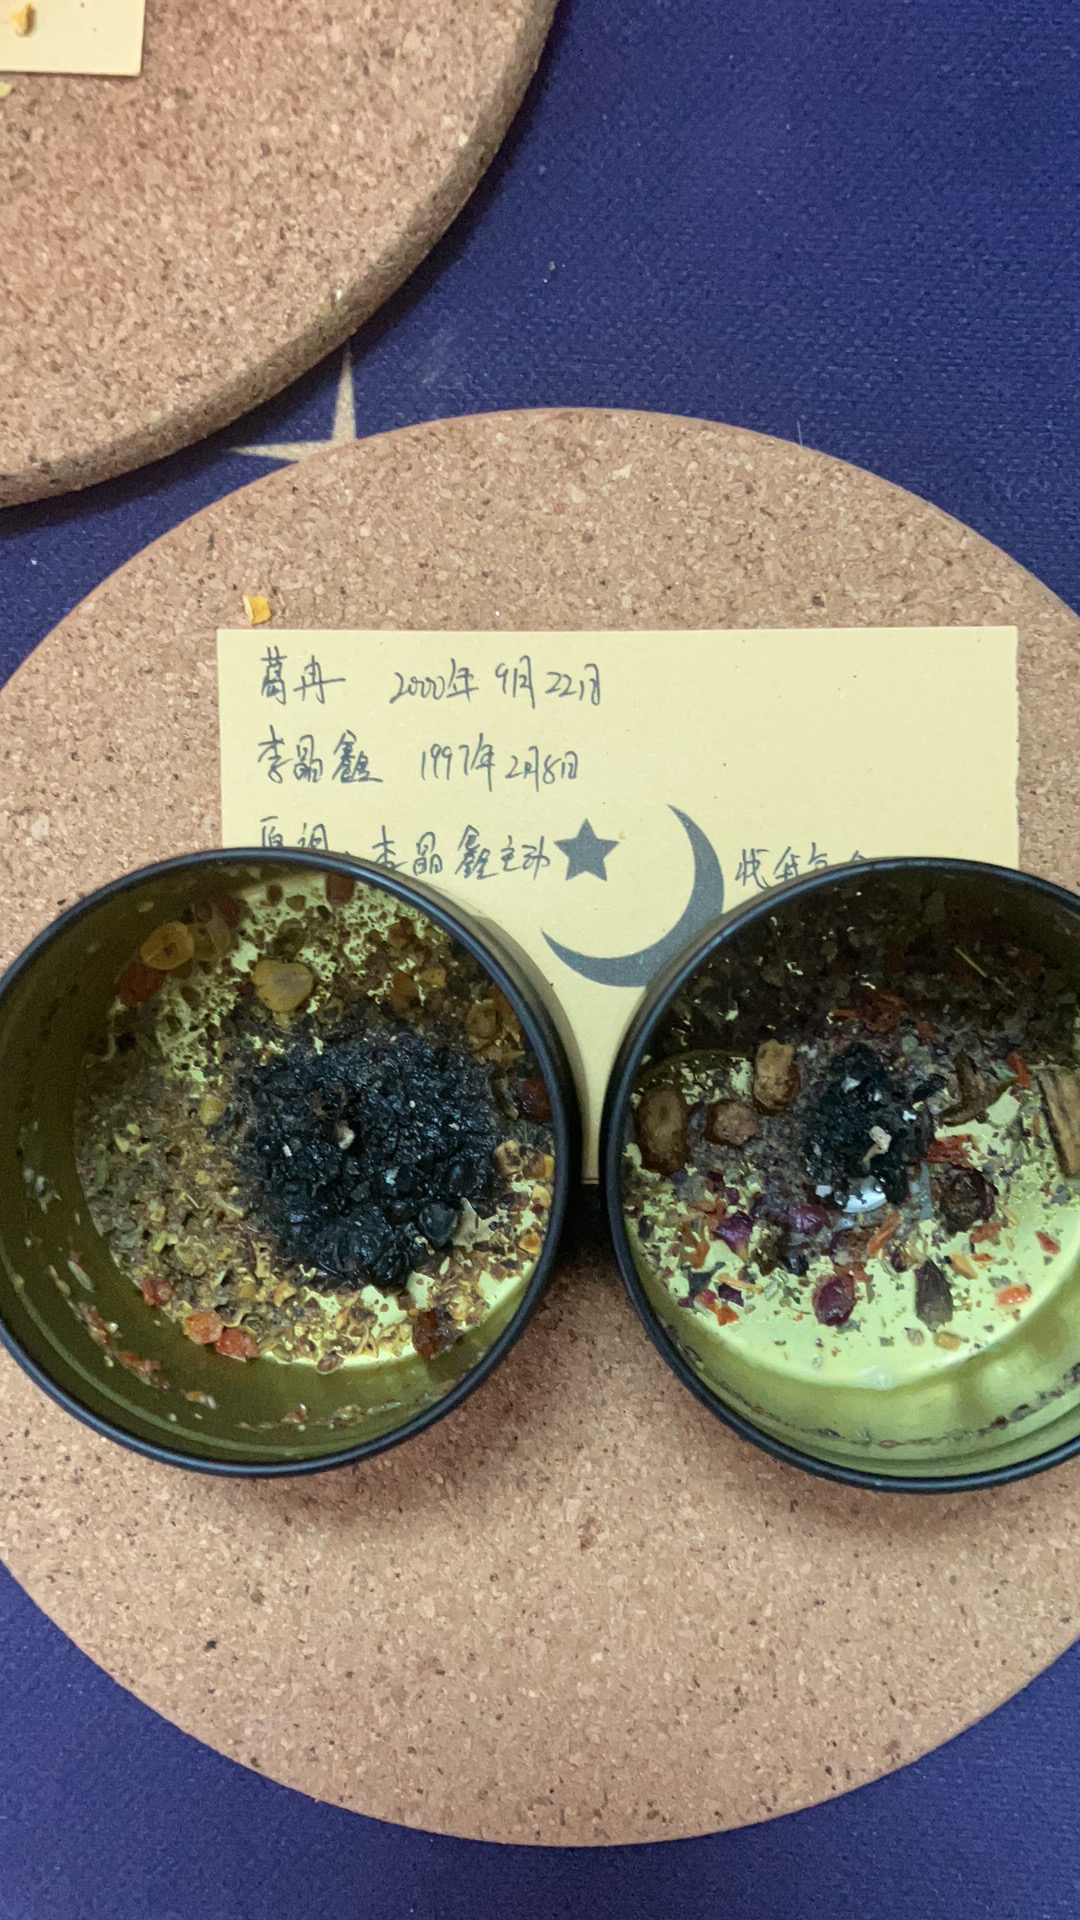 葛冉 2000年9月22日
李晶鑫 1997年2月8日
李晶鑫主动 找我